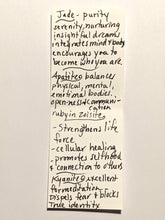 Jade - purity
serenity, nurturing
insightful dreams
integrates mind & body
encourages you to
become who you are.
Apatite balances
physical, mental,
emotional bodies,
openness to communi-
cation
ruby in zoisite
- Strengthens life
force
- cellular healing
- promotes selfhood
& connection to others
Kyanite excellent
for meditation
Dispels fear & blocks
True identity.